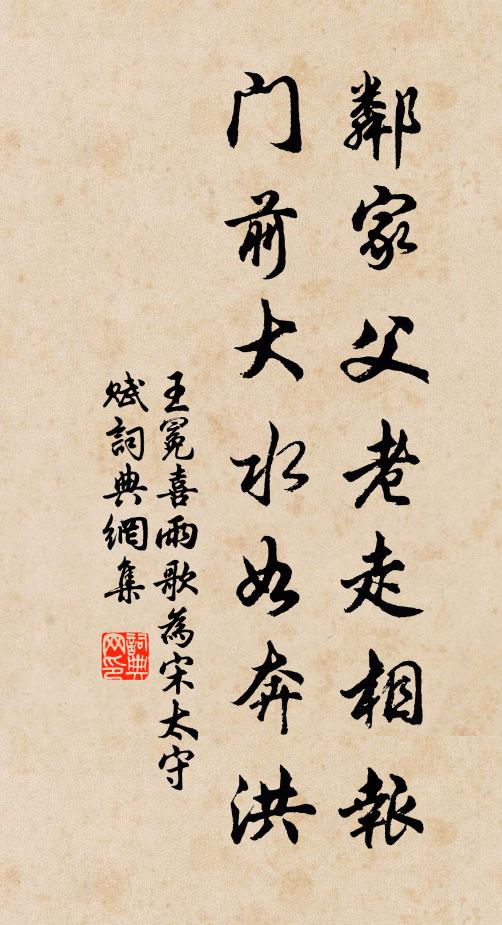 鄰家父老走相報
门前大水如奔洪
王冕喜雨歌為宋太守
賦詞典網集
詞典
网印